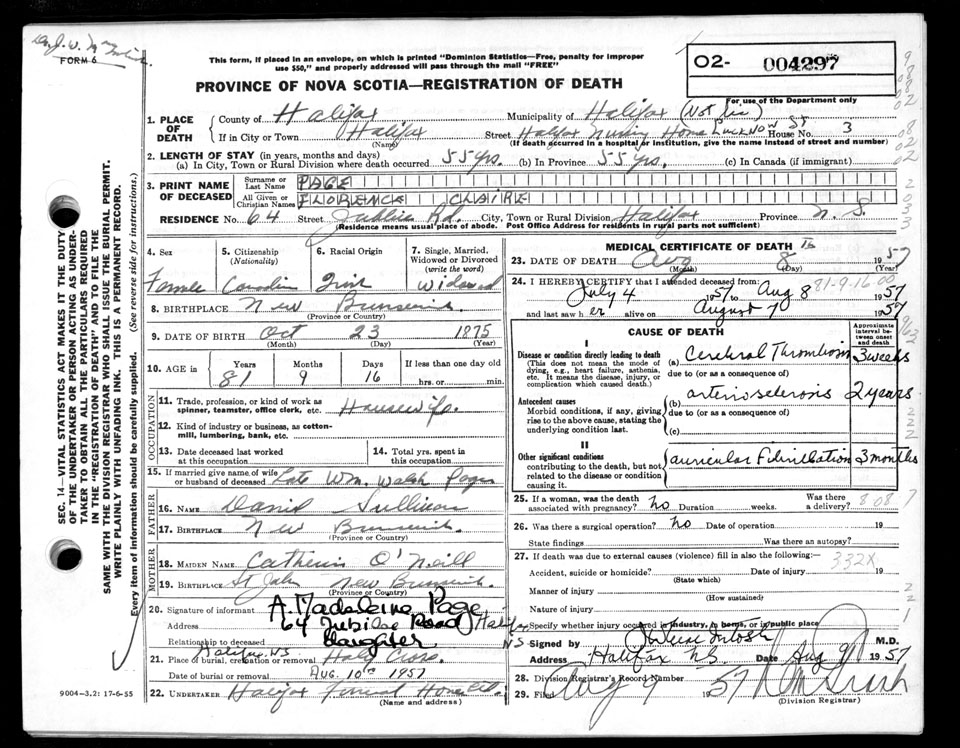 Dr. J. W.
FORM 6
This form, if placed in an envelope, on which is printed "Dominion Statistics—Free, penalty for improper
use $50," and properly addressed will pass through the mail "FREE"
PROVINCE OF NOVA SCOTIA—REGISTRATION OF DEATH
02- 004297
For use of the Department only
1. PLACE OF DEATH
County of Halifax Municipality of Halifax (Not
If in City or Town Halifax Street Halifax Nursing Home Lucknow St House No. 3
(Name) (If death occurred in a hospital or institution, give the name instead of street and number)
2. LENGTH OF STAY (in years, months and days)
(a) In City, Town or Rural Division where death occurred 55 yrs. (b) In Province 55 yrs. (c) In Canada (if immigrant)
3. PRINT NAME OF DECEASED
Surname or Last Name PAGE
All Given or Christian Names FLORENCE CLAIRE
RESIDENCE No. 64 Street Jubilee Rd. City, Town or Rural Division Halifax Province N. S.
(Residence means usual place of abode. Post Office Address for residents in rural parts not sufficient)
4. Sex
Female
5. Citizenship
(Nationality)
Canadian
6. Racial Origin
Irish
7. Single, Married,
Widowed or Divorced
(write the word)
Widowed
8. BIRTHPLACE New Brunswick
(Province or Country)
9. DATE OF BIRTH Oct 23 1875
(Month) (Day) (Year)
10. AGE in Years Months Days If less than one day old
81 9 16 hrs. or min.
OCCUPATION
11. Trade, profession, or kind of work as
spinner, teamster, office clerk, etc. Housewife.
12. Kind of industry or business, as cotton-
mill, lumbering, bank, etc.
13. Date deceased last worked
at this occupation
14. Total yrs. spent in
this occupation
15. If married give name of wife
or husband of deceased Late Wm. Walsh Page
FATHER
16. NAME David Sullivan
17. BIRTHPLACE New Brunswick
(Province or Country)
MOTHER
18. MAIDEN NAME Catherine O'Neill
19. BIRTHPLACE St John New Brunswick.
(Province or Country)
20. Signature of informant A. Madeleine Page
Address 64 Jubilee Road Halifax NS
Relationship to deceased Daughter
Halifax, NS
21. Place of burial, cremation or removal Holy Cross.
Date of burial or removal AUG. 10th 1957
22. UNDERTAKER Halifax Funeral Home Ltd.
(Name and address)
MEDICAL CERTIFICATE OF DEATH
23. DATE OF DEATH Aug 8 1957
(Month) (Day) (Year)
24. I HEREBY CERTIFY that I attended deceased from:
July 4 1957 to Aug 8 1957
81-9-16 00
and last saw her alive on August 7 1957
CAUSE OF DEATH
Approximate
interval between onset
and death
I
Disease or condition directly leading to death
(This does not mean the mode of
dying, e.g., heart failure, asthenia,
etc. It means the disease, injury, or
complication which caused death.)
(a) Cerebral Thrombosis 3 weeks
due to (or as a consequence of)
Antecedent causes
Morbid conditions, if any, giving
rise to the above cause, stating the
underlying condition last.
(b) arteriosclerosis 2 years
due to (or as a consequence of)
(c)
II
Other significant conditions
contributing to the death, but not
related to the disease or condition
causing it.
auricular Fibrillation 3 months
25. If a woman, was the death
associated with pregnancy? No Duration weeks. Was there
a delivery?
808
26. Was there a surgical operation? No Date of operation 19
State findings Was there an autopsy?
27. If death was due to external causes (violence) fill in also the following:—
332X
Accident, suicide or homicide? Date of injury 19
(State which)
Manner of injury
(How sustained)
Nature of injury
Specify whether injury occurred in industry, in home, or in public place
Signed by M.D.
Address Halifax N.S. Date Aug 9 1957
28. Division Registrar's Record Number
29. Filed Aug 9 1957
(Division Registrar)
SEC. 14—VITAL STATISTICS ACT MAKES IT THE DUTY
OF THE UNDERTAKER OR PERSON ACTING AS UNDER-
TAKER TO OBTAIN ALL THE PARTICULARS REQUIRED
IN THE "REGISTRATION OF DEATH" AND TO FILE THE
SAME WITH THE DIVISION REGISTRAR WHO SHALL ISSUE THE BURIAL PERMIT.
WRITE PLAINLY WITH UNFADING INK. THIS IS A PERMANENT RECORD.
Every item of information should be carefully supplied. (See reverse side for instructions.)
9004-3.2: 17-6-55